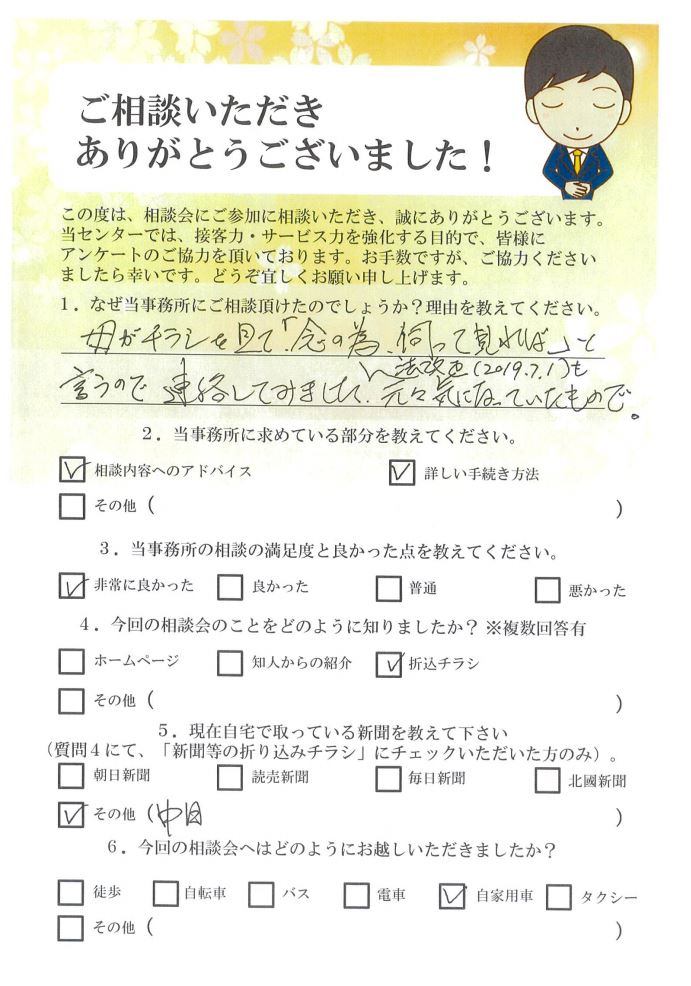 ご相談いただき
ありがとうございました！
この度は、相談会にご参加に相談いただき、誠にありがとうございます。
当センターでは、接客力・サービス力を強化する目的で、皆様に
アンケートのご協力を頂いております。お手数ですが、ご協力ください
ましたら幸いです。どうぞ宜しくお願い申し上げます。
1．なぜ当事務所にご相談頂けたのでしょうか？理由を教えてください。
母がチラシを見て「念の為、伺って見れば」と
言うので連絡してみました。
法改正（2019.7.1）も
元々気になっていたもので。
2．当事務所に求めている部分を教えてください。
相談内容へのアドバイス 詳しい手続き方法
その他（ ）
3．当事務所の相談の満足度と良かった点を教えてください。
非常に良かった 良かった 普通 悪かった
4．今回の相談会のことをどのように知りましたか？※複数回答有
ホームページ 知人からの紹介 折込チラシ
その他（ ）
5．現在自宅で取っている新聞を教えて下さい
（質問4にて、「新聞等の折り込みチラシ」にチェックいただいた方のみ）。
朝日新聞 読売新聞 毎日新聞 北國新聞
その他（中日 ）
6．今回の相談会へはどのようにお越しいただきましたか？
徒歩 自転車 バス 電車 自家用車 タクシー
その他（ ）